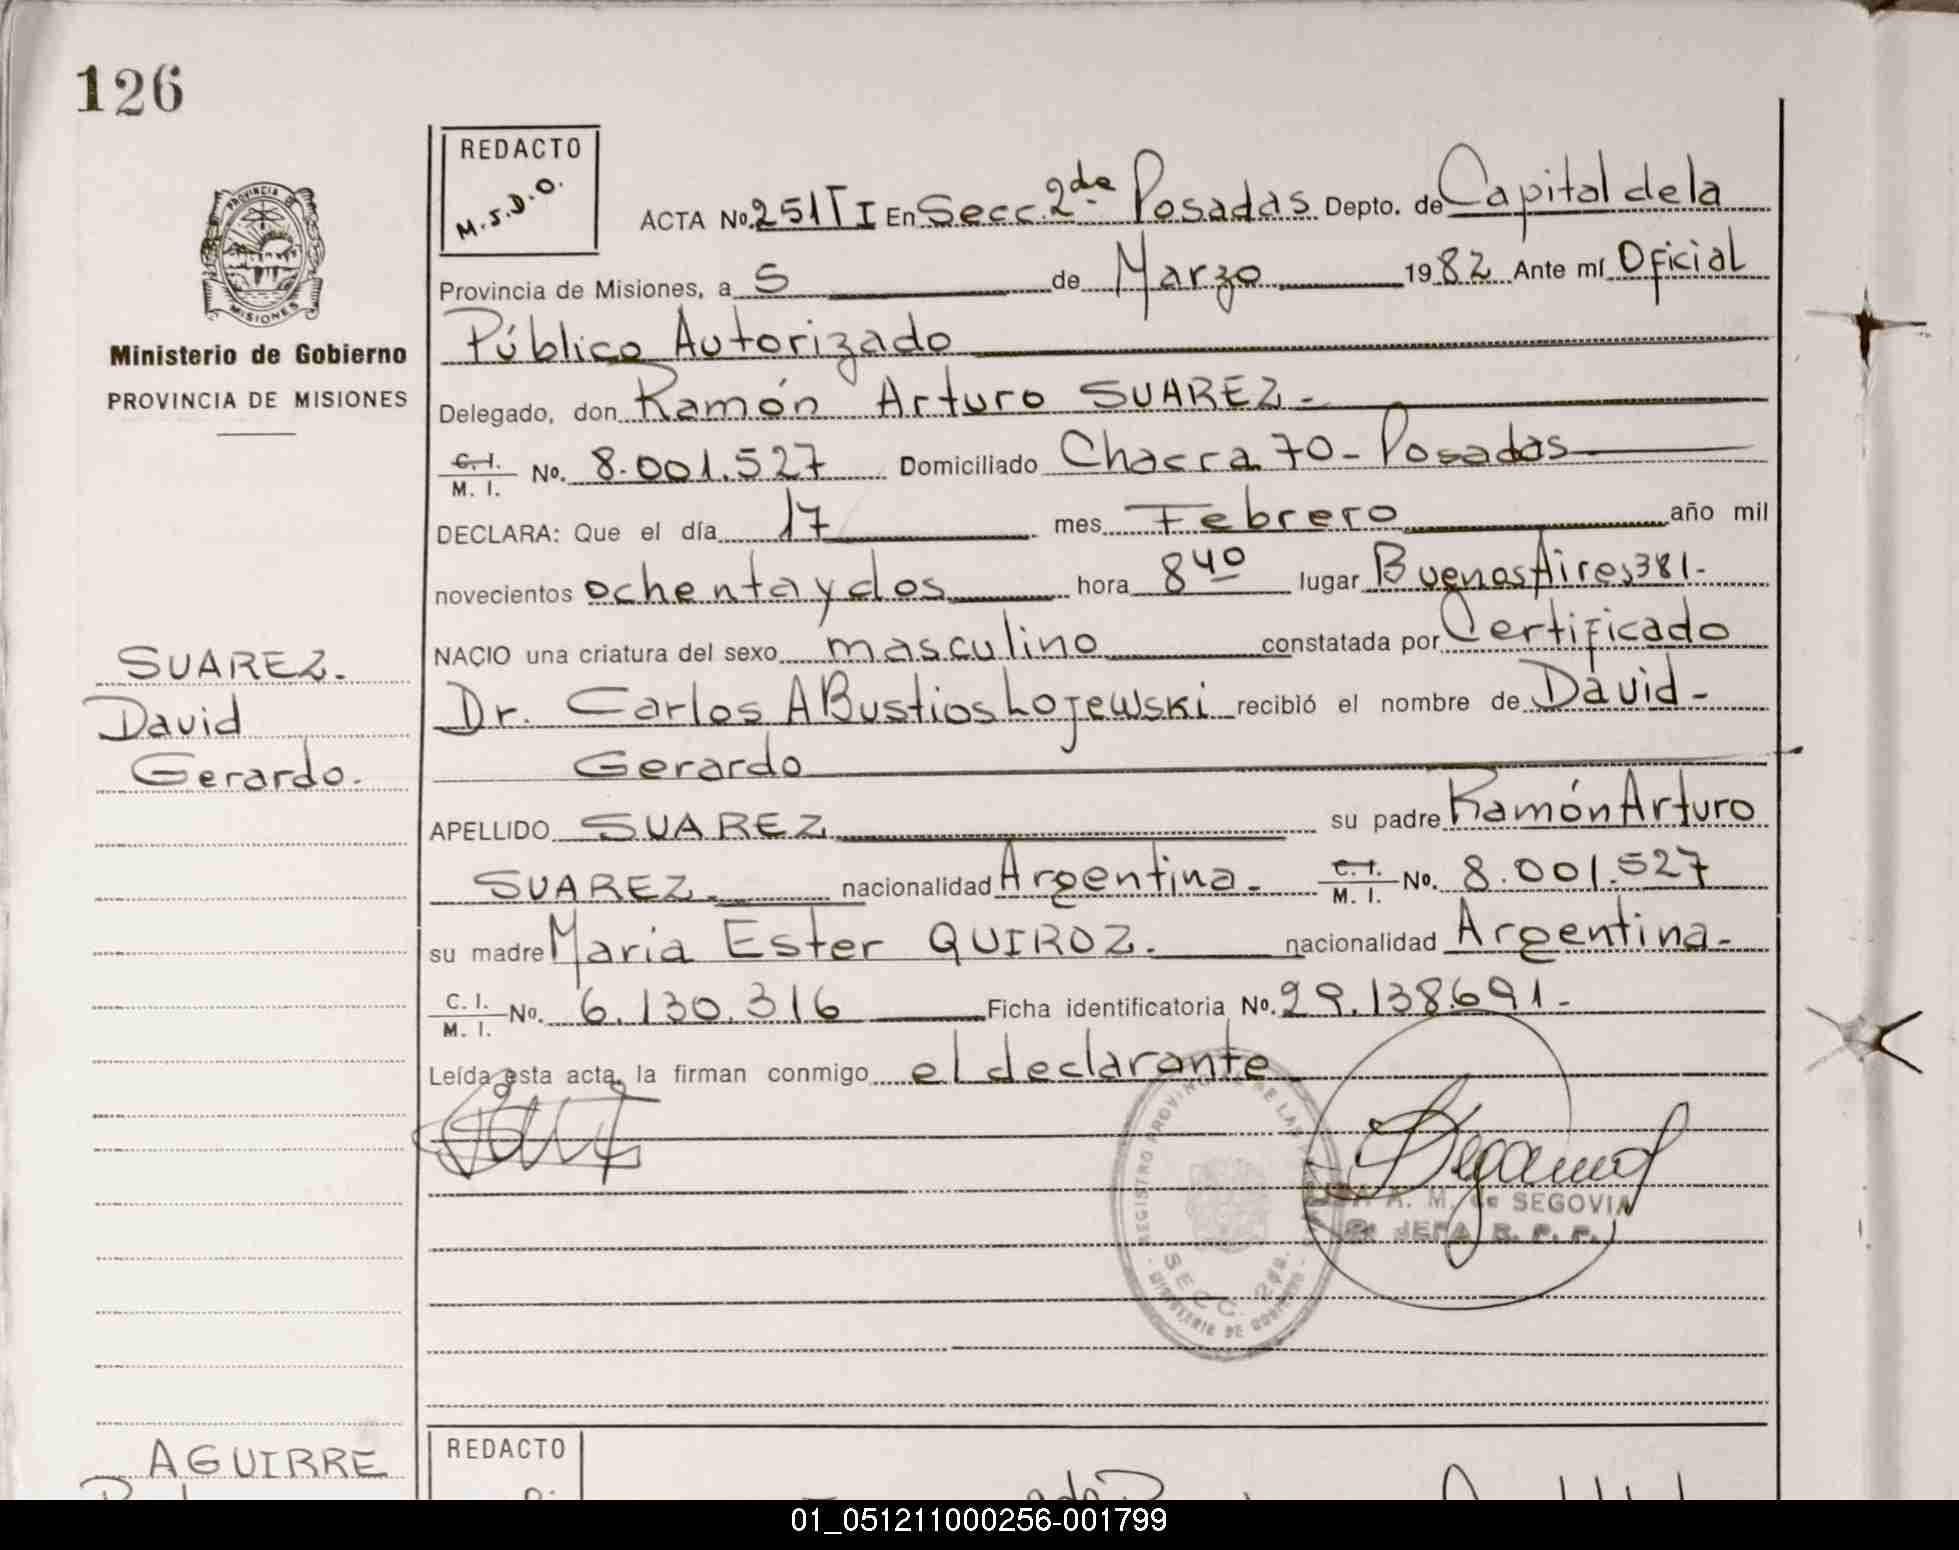 126
REDACTO
M.S.D.O.
PROVINCIA DE
MISIONES
Ministerio de Gobierno
PROVINCIA DE MISIONES
ACTA No. 251 T I En Secc. 2da Posadas Depto. de Capital de la
Provincia de Misiones, a 5 de Marzo 1982 Ante mí Oficial
Público Autorizado
Delegado, don Ramón Arturo SUAREZ.-
C. I. / M. I. No. 8.001.527 Domiciliado Chacra 70 - Posadas
DECLARA: Que el día 17 mes Febrero año mil
novecientos ochenta y dos hora 8 40 lugar Buenos Aires 381.-
NACIO una criatura del sexo masculino constatada por Certificado
Dr. Carlos A Bustios Lojewski recibió el nombre de David-
Gerardo
SUAREZ.
David
Gerardo.
APELLIDO SUAREZ su padre Ramón Arturo
SUAREZ. nacionalidad Argentina.- C. I. / M. I. No. 8.001.527
su madre Maria Ester QUIROZ. nacionalidad Argentina.-
C. I. / M. I. No. 6.130.316 Ficha identificatoria No. 29.138.691.-
Leída esta acta, la firman conmigo el declarante
REGISTRO PROVINCIAL DE LAS PERSONAS
SECC. 2da.
MINISTERIO DE GOBIERNO
A. M. de SEGOVIA
JEFA R. P. P.
AGUIRRE
REDACTO
01_051211000256-001799